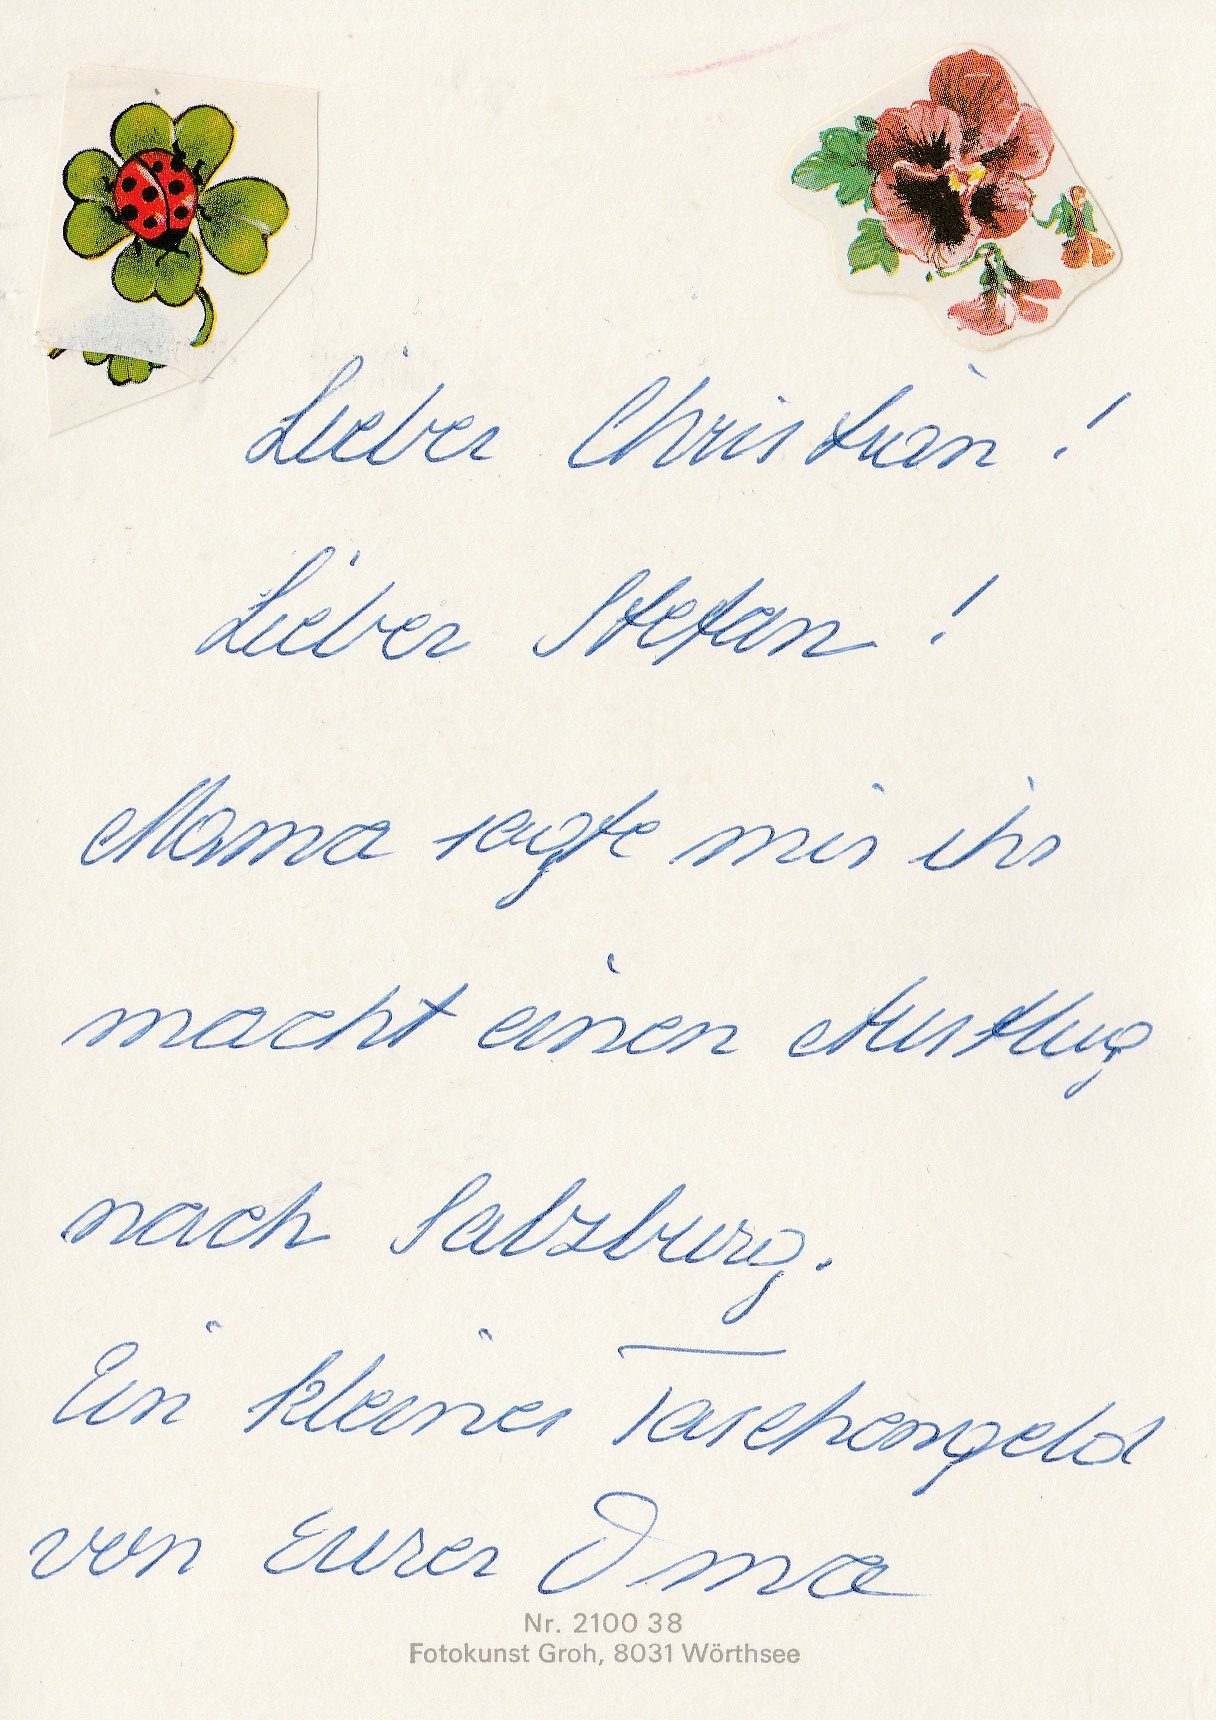 Lieber Christian!
Lieber Stefan!
Mama sagte mir ihr
macht einen Ausflug
nach Salzburg.
Ein kleines Taschengeld
von Eurer Oma
Nr. 2100 38
Fotokunst Groh, 8031 Wörthsee